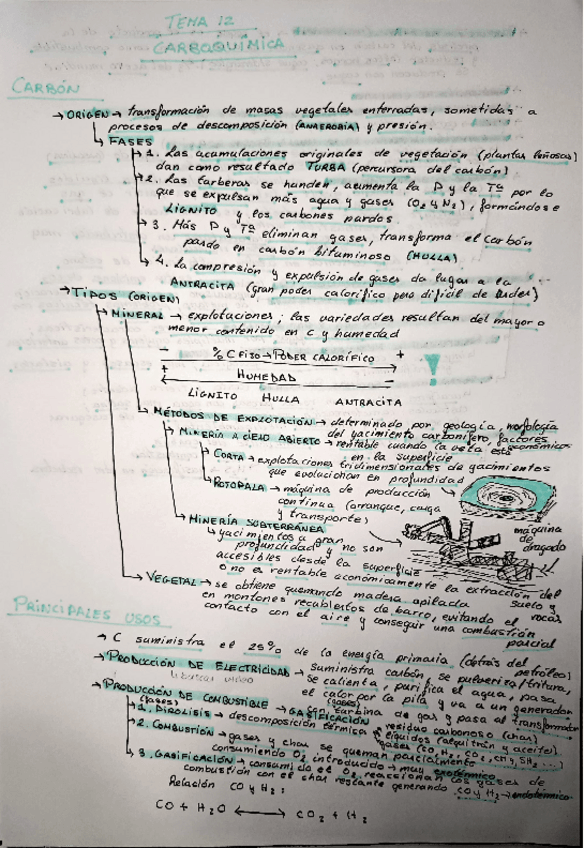 TEMA 12
CARBOQUÍMICA
CARBÓN
→ ORIGEN → transformación de masas vegetales enterradas, sometidas a
procesos de descomposición (ANAEROBIA) y presión.
↳ FASES
→ 1. Las acumulaciones originales de vegetación (plantas leñosas)
dan como resultado TURBA (percursora del carbón)
→ 2. Las turberas se hunden, aumenta la P y la Tª por lo
que se expulsan más agua y gases (O2 y N2), formándose
LIGNITO y los carbones pardos.
→ 3. Más P y Tª eliminan gases, transforma el carbón
pardo en carbón bituminoso (HULLA)
→ 4. La compresión y expulsión de gases da lugar a la
ANTRACITA (gran poder calorífico pero difícil de arder)
→ TIPOS (ORIGEN)
→ MINERAL → explotaciones; las variedades resultan del mayor o
menor contenido en C y humedad
- % C FIJO → PODER CALORÍFICO +
+ HUMEDAD -
LIGNITO HULLA ANTRACITA
!
→ MÉTODOS DE EXPLOTACIÓN → determinado por geología, morfología
del yacimiento carbonífero, factores
económicos
→ MINERÍA A CIELO ABIERTO → rentable cuando la veta está
en la superficie
→ CORTA → explotaciones tridimensionales de yacimientos
que evolucionan en profundidad
→ ROTOPALA → máquina de producción
continua (arranque, carga
y transporte)
máquina
de
dragado
→ MINERÍA SUBTERRÁNEA
↳ yacimientos a gran
profundidad y no son
accesibles desde la superficie
o no es rentable económicamente la extracción del
suelo y
rocas
→ VEGETAL → se obtiene quemando madera apilada
en montones recubiertos de barro, evitando el
contacto con el aire y conseguir una combustión
parcial
PRINCIPALES USOS
→ C suministra el 25% de la energía primaria (detrás del
petróleo)
→ PRODUCCIÓN DE ELECTRICIDAD → suministra carbón, se pulveriza/tritura,
se calienta, purifica el agua, pasa
el calor por la pila y va a un generador
con turbina de gas y pasa al transformador
→ PRODUCCIÓN DE COMBUSTIBLE → GASIFICACIÓN
(fases)
(gases)
→ 1. PIRÓLISIS → descomposición térmica
residuo carbonoso (char)
líquidos (alquitrán y aceites)
gases (CO, H2, CO2, CH4, SH2 ...)
→ 2. COMBUSTIÓN → gases y char se queman parcialmente
consumiendo O2 introducido → muy exotérmico
→ 3. GASIFICACIÓN → consumida el O2, reaccionan los gases de
combustión con el char restante generando CO y H2 → endotérmico
Relación CO y H2:
CO + H2O ⟷ CO2 + H2